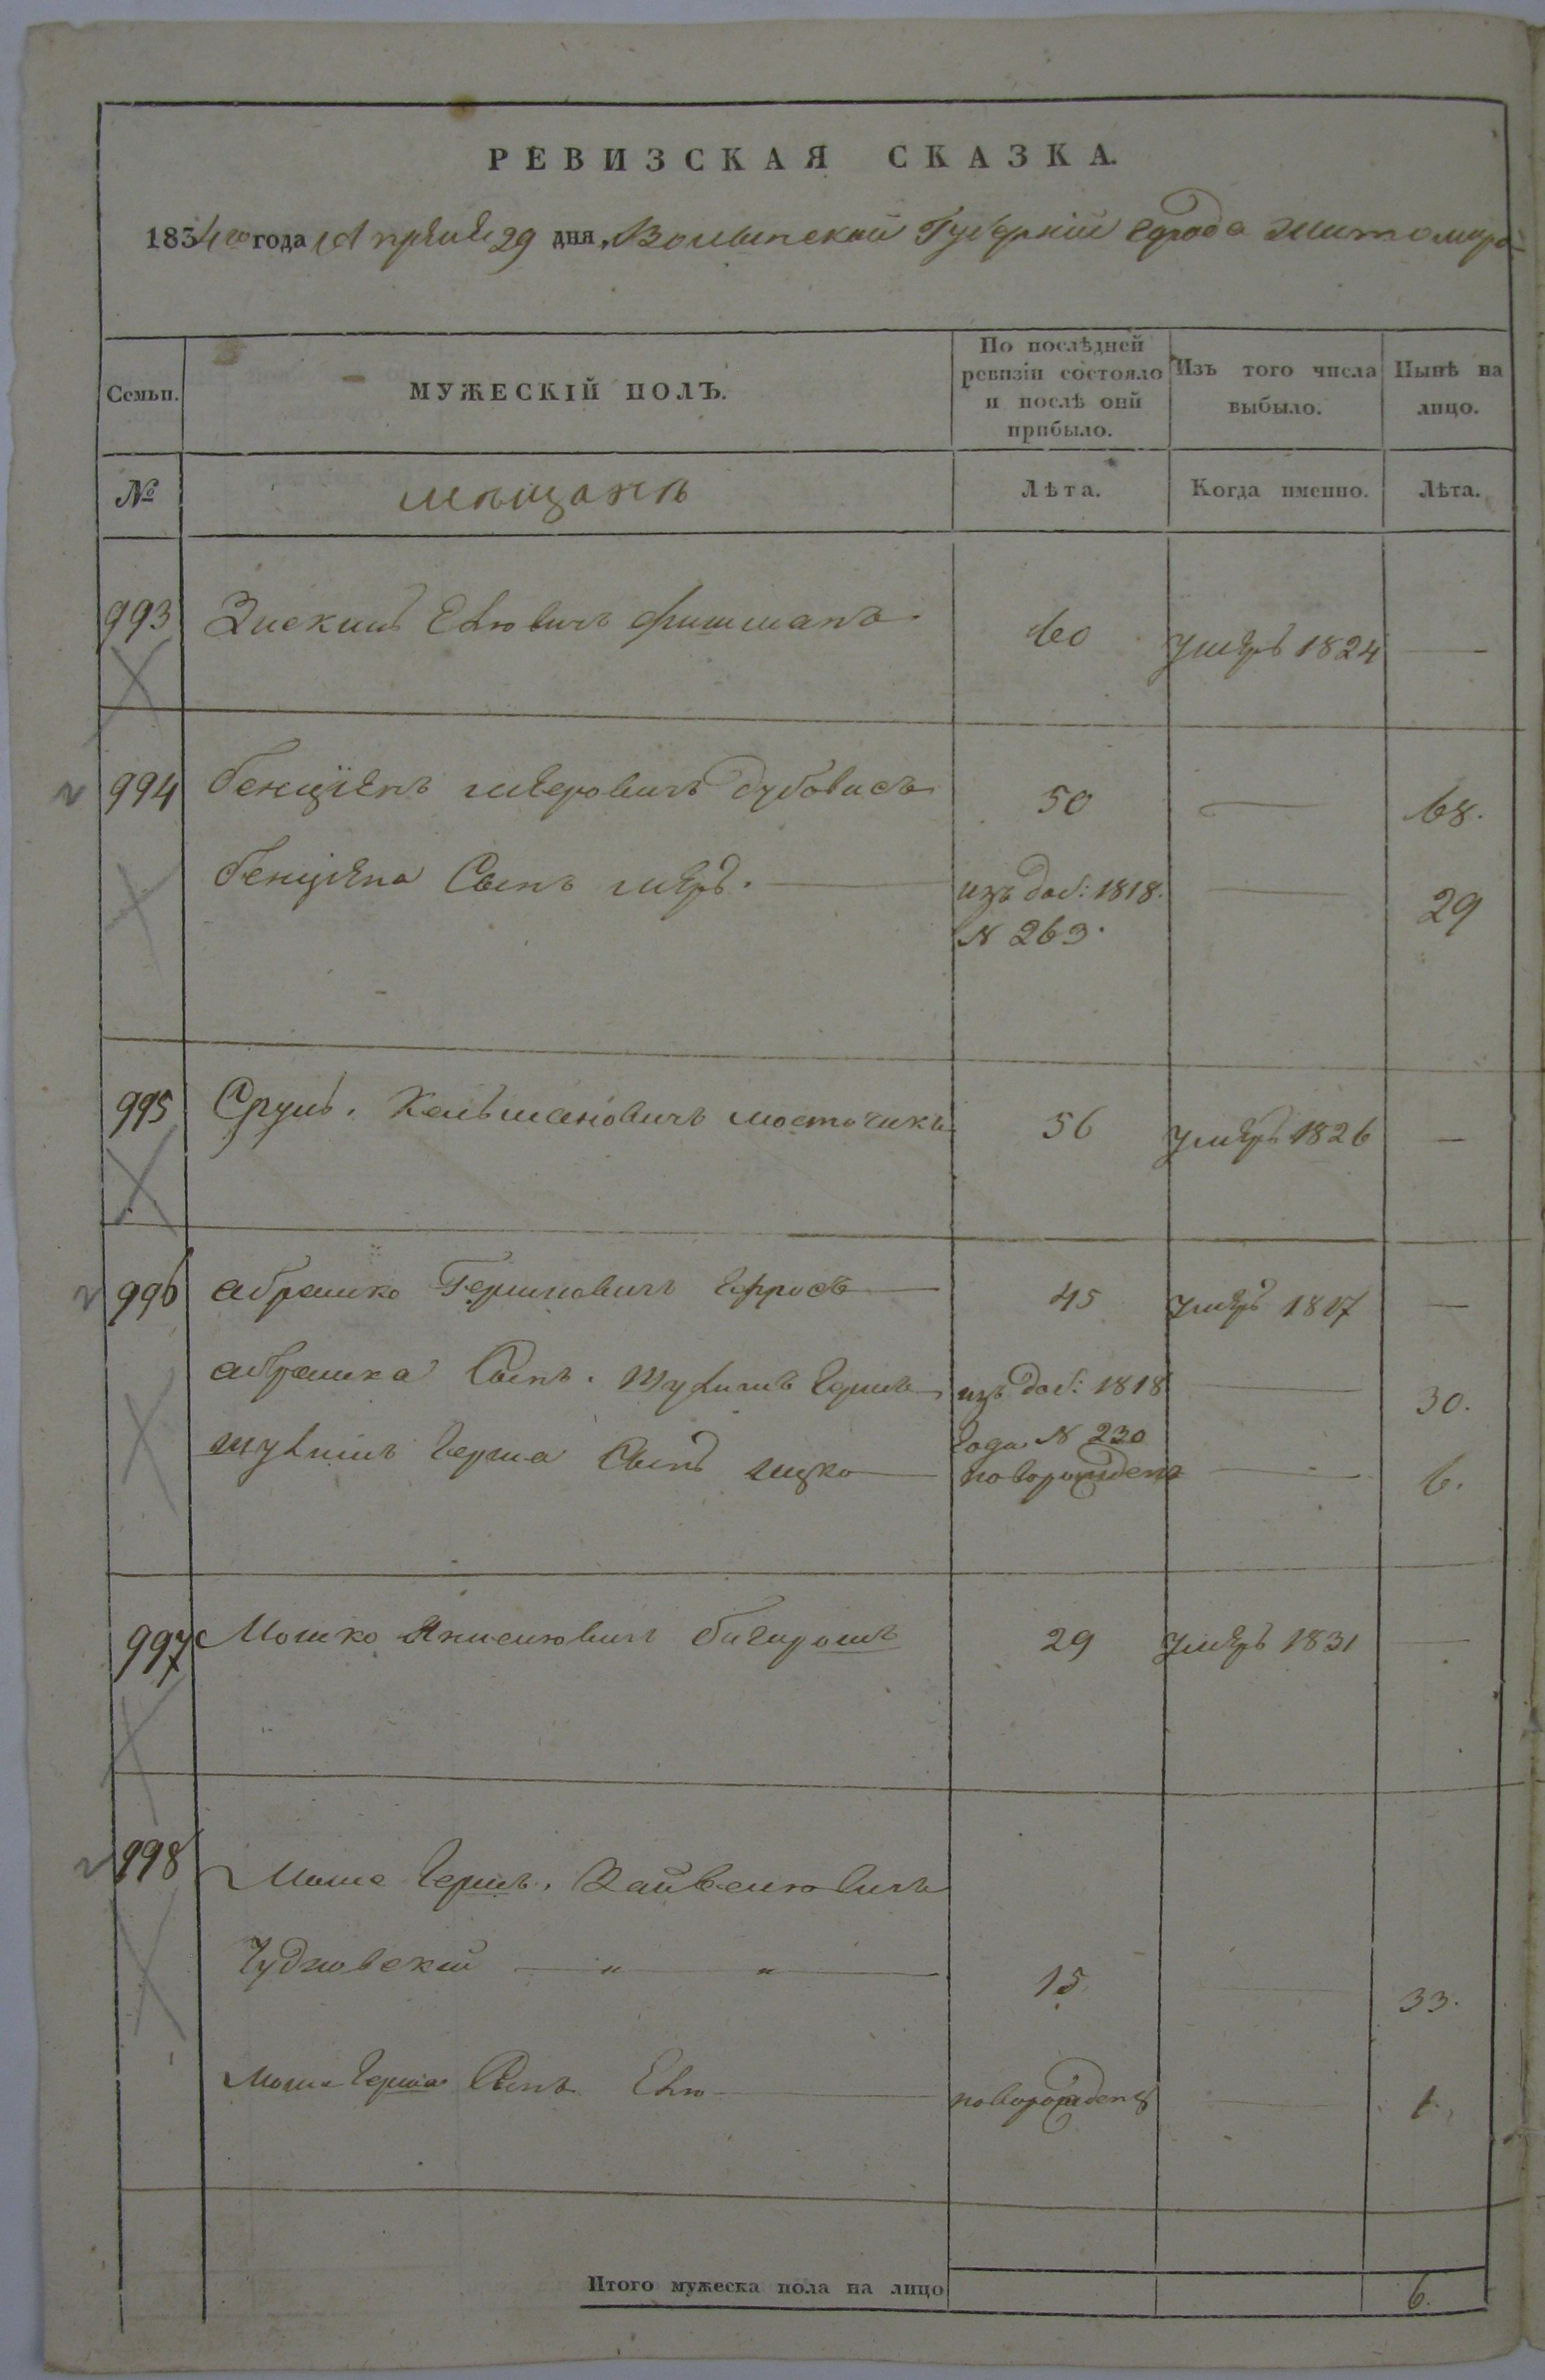 РЕВИЗСКАЯ СКАЗКА.
1834го года Апреля 29 дня, Волынской Губернии города Житомира
Семьи.
МУЖЕСКІЙ ПОЛЪ.
По послѣдней ревизіи состояло и послѣ оной прибыло.
Изъ того числа выбыло.
Нынѣ на лицо.
№
мѣщанѣ
Лѣта.
Когда именно.
Лѣта.
993 Зискинъ Евлювичъ фишманъ 60 умеръ 1824 —
994 бенціенъ мееровичъ дубовисъ 50 — 68.
бенціена Сынъ мееръ. — изъ доб: 1818. — 29
N 263.
995 Сруль. Кельмановичъ мосточикъ 56 умеръ 1826 —
996 абрамко Гершковичъ ефросъ — 45 умеръ 1817 —
абрамка Сынъ. Шулимъ гершъ изъ доб: 1818 — 30.
года N 230
шулимъ герша Сынъ ицко — новорожденъ — 6.
997 Мошко Янкелювичъ 29 умеръ 1831 —
998 Моше гершъ. Зайвелювичъ
Чудновский — " — " — 15. — 33.
Моше герша Сынъ — новорожденъ — 1.
Итого мужеска пола на лицо 6.